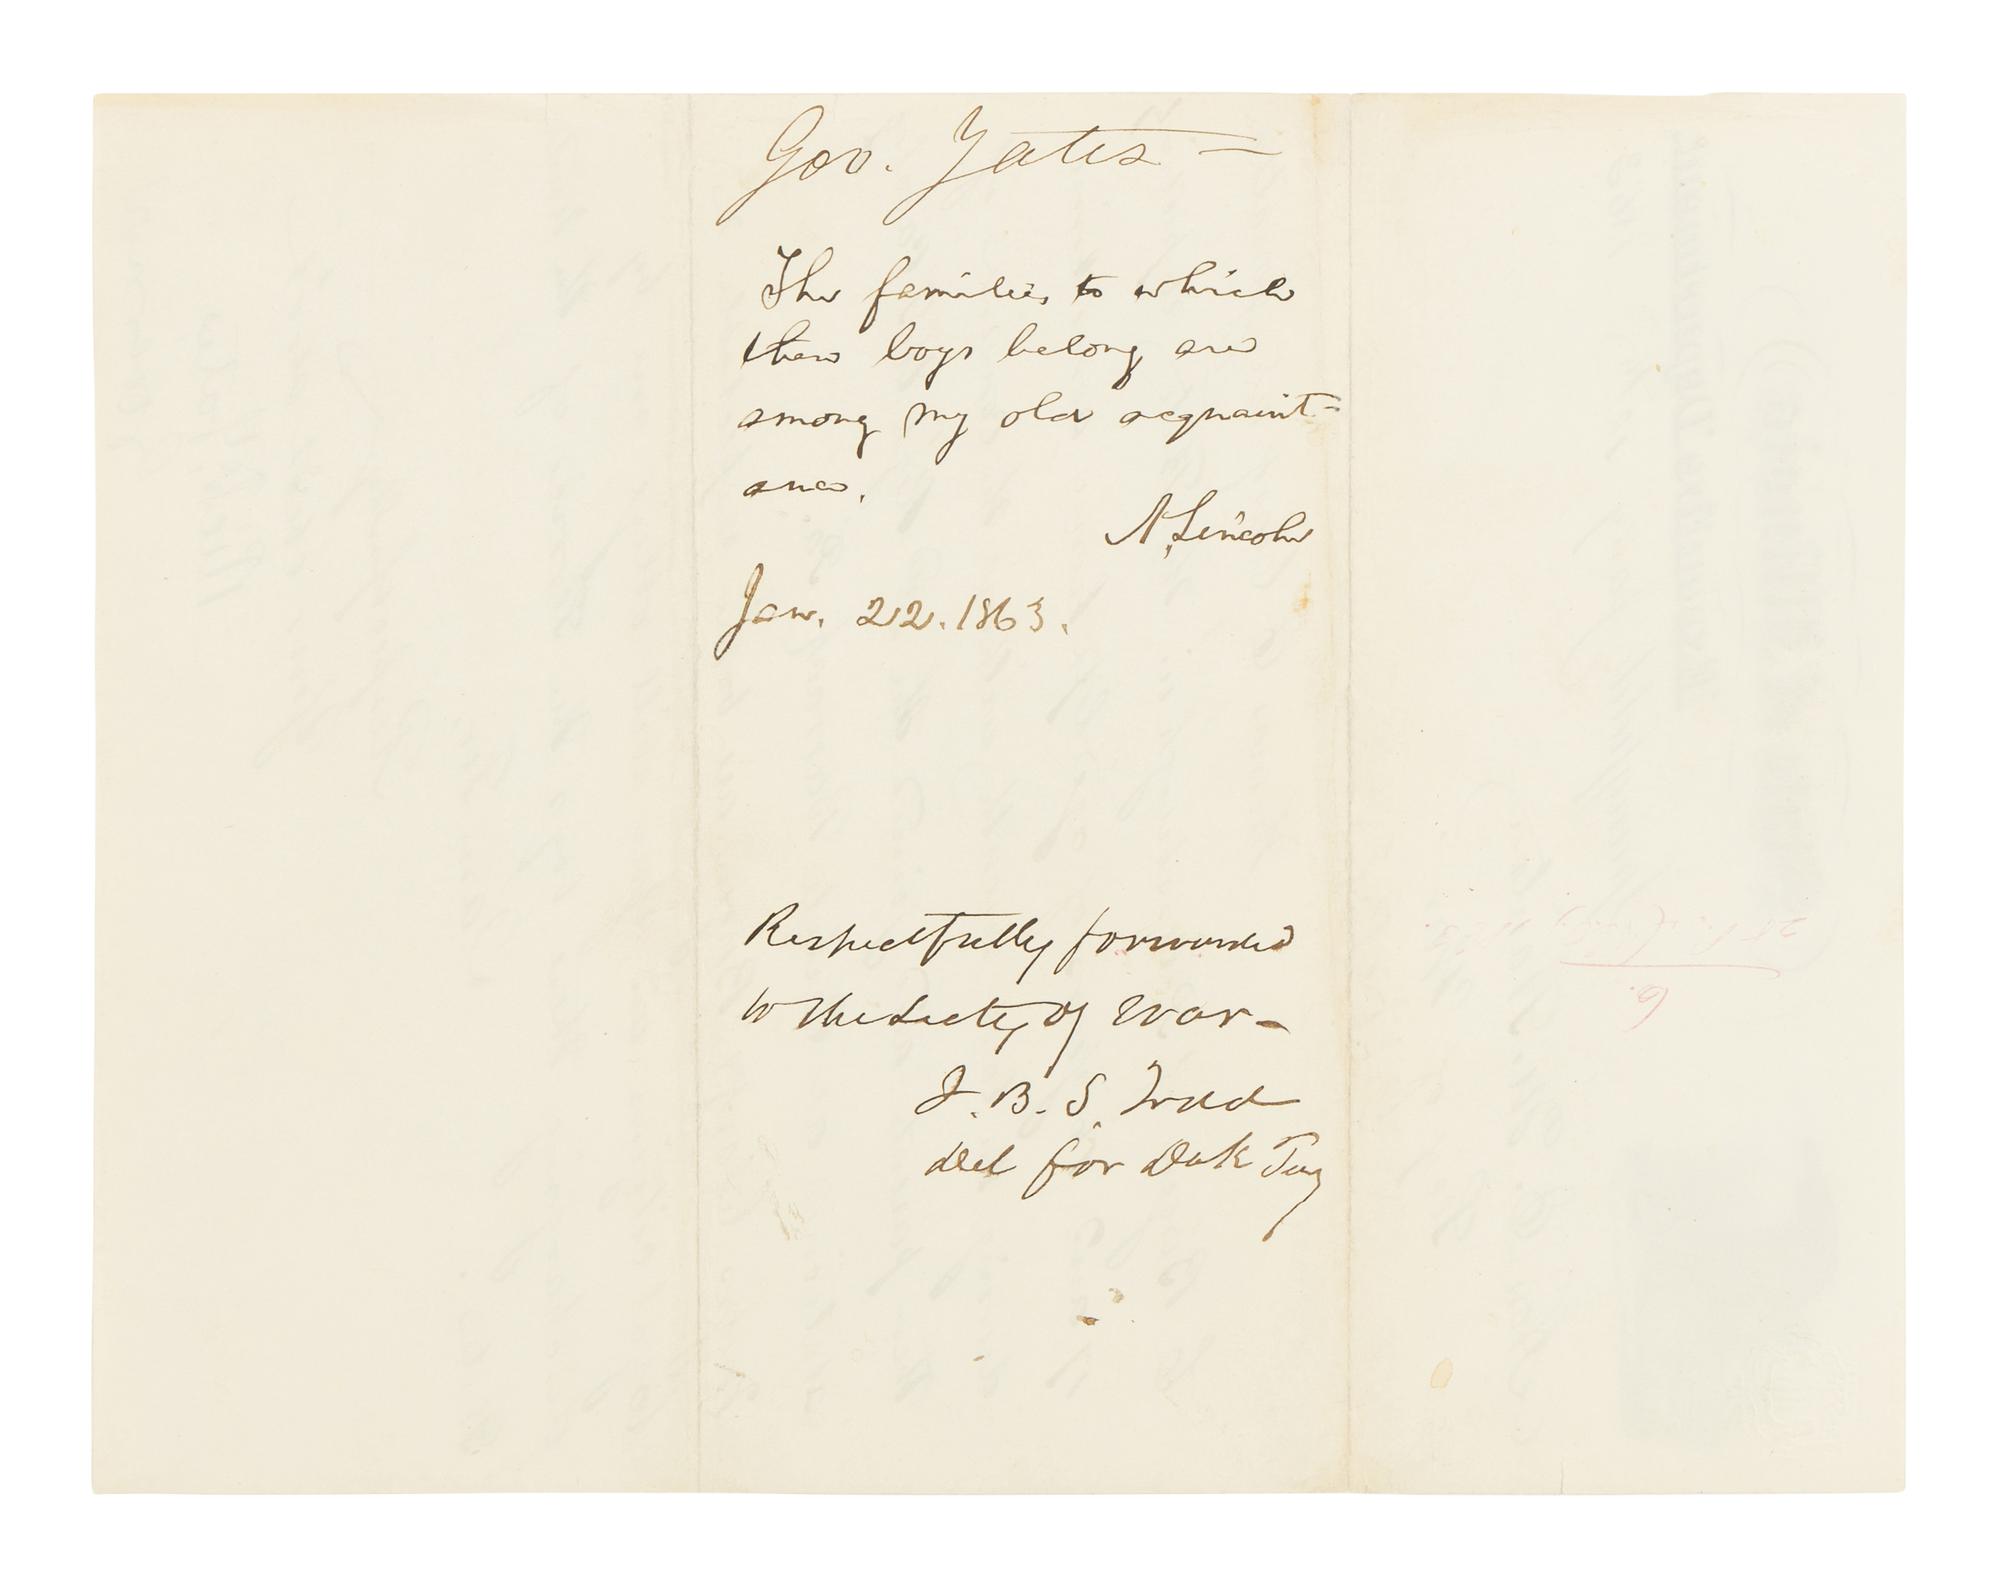 Gov. Yates =
The families to which
these boys belong are
among my old acquaint=
ance.
A. Lincoln
Jan. 22. 1863.
Respectfully forwarded
to the Secty of War -
J. B. S. Todd
Del for Dak Tery
6.